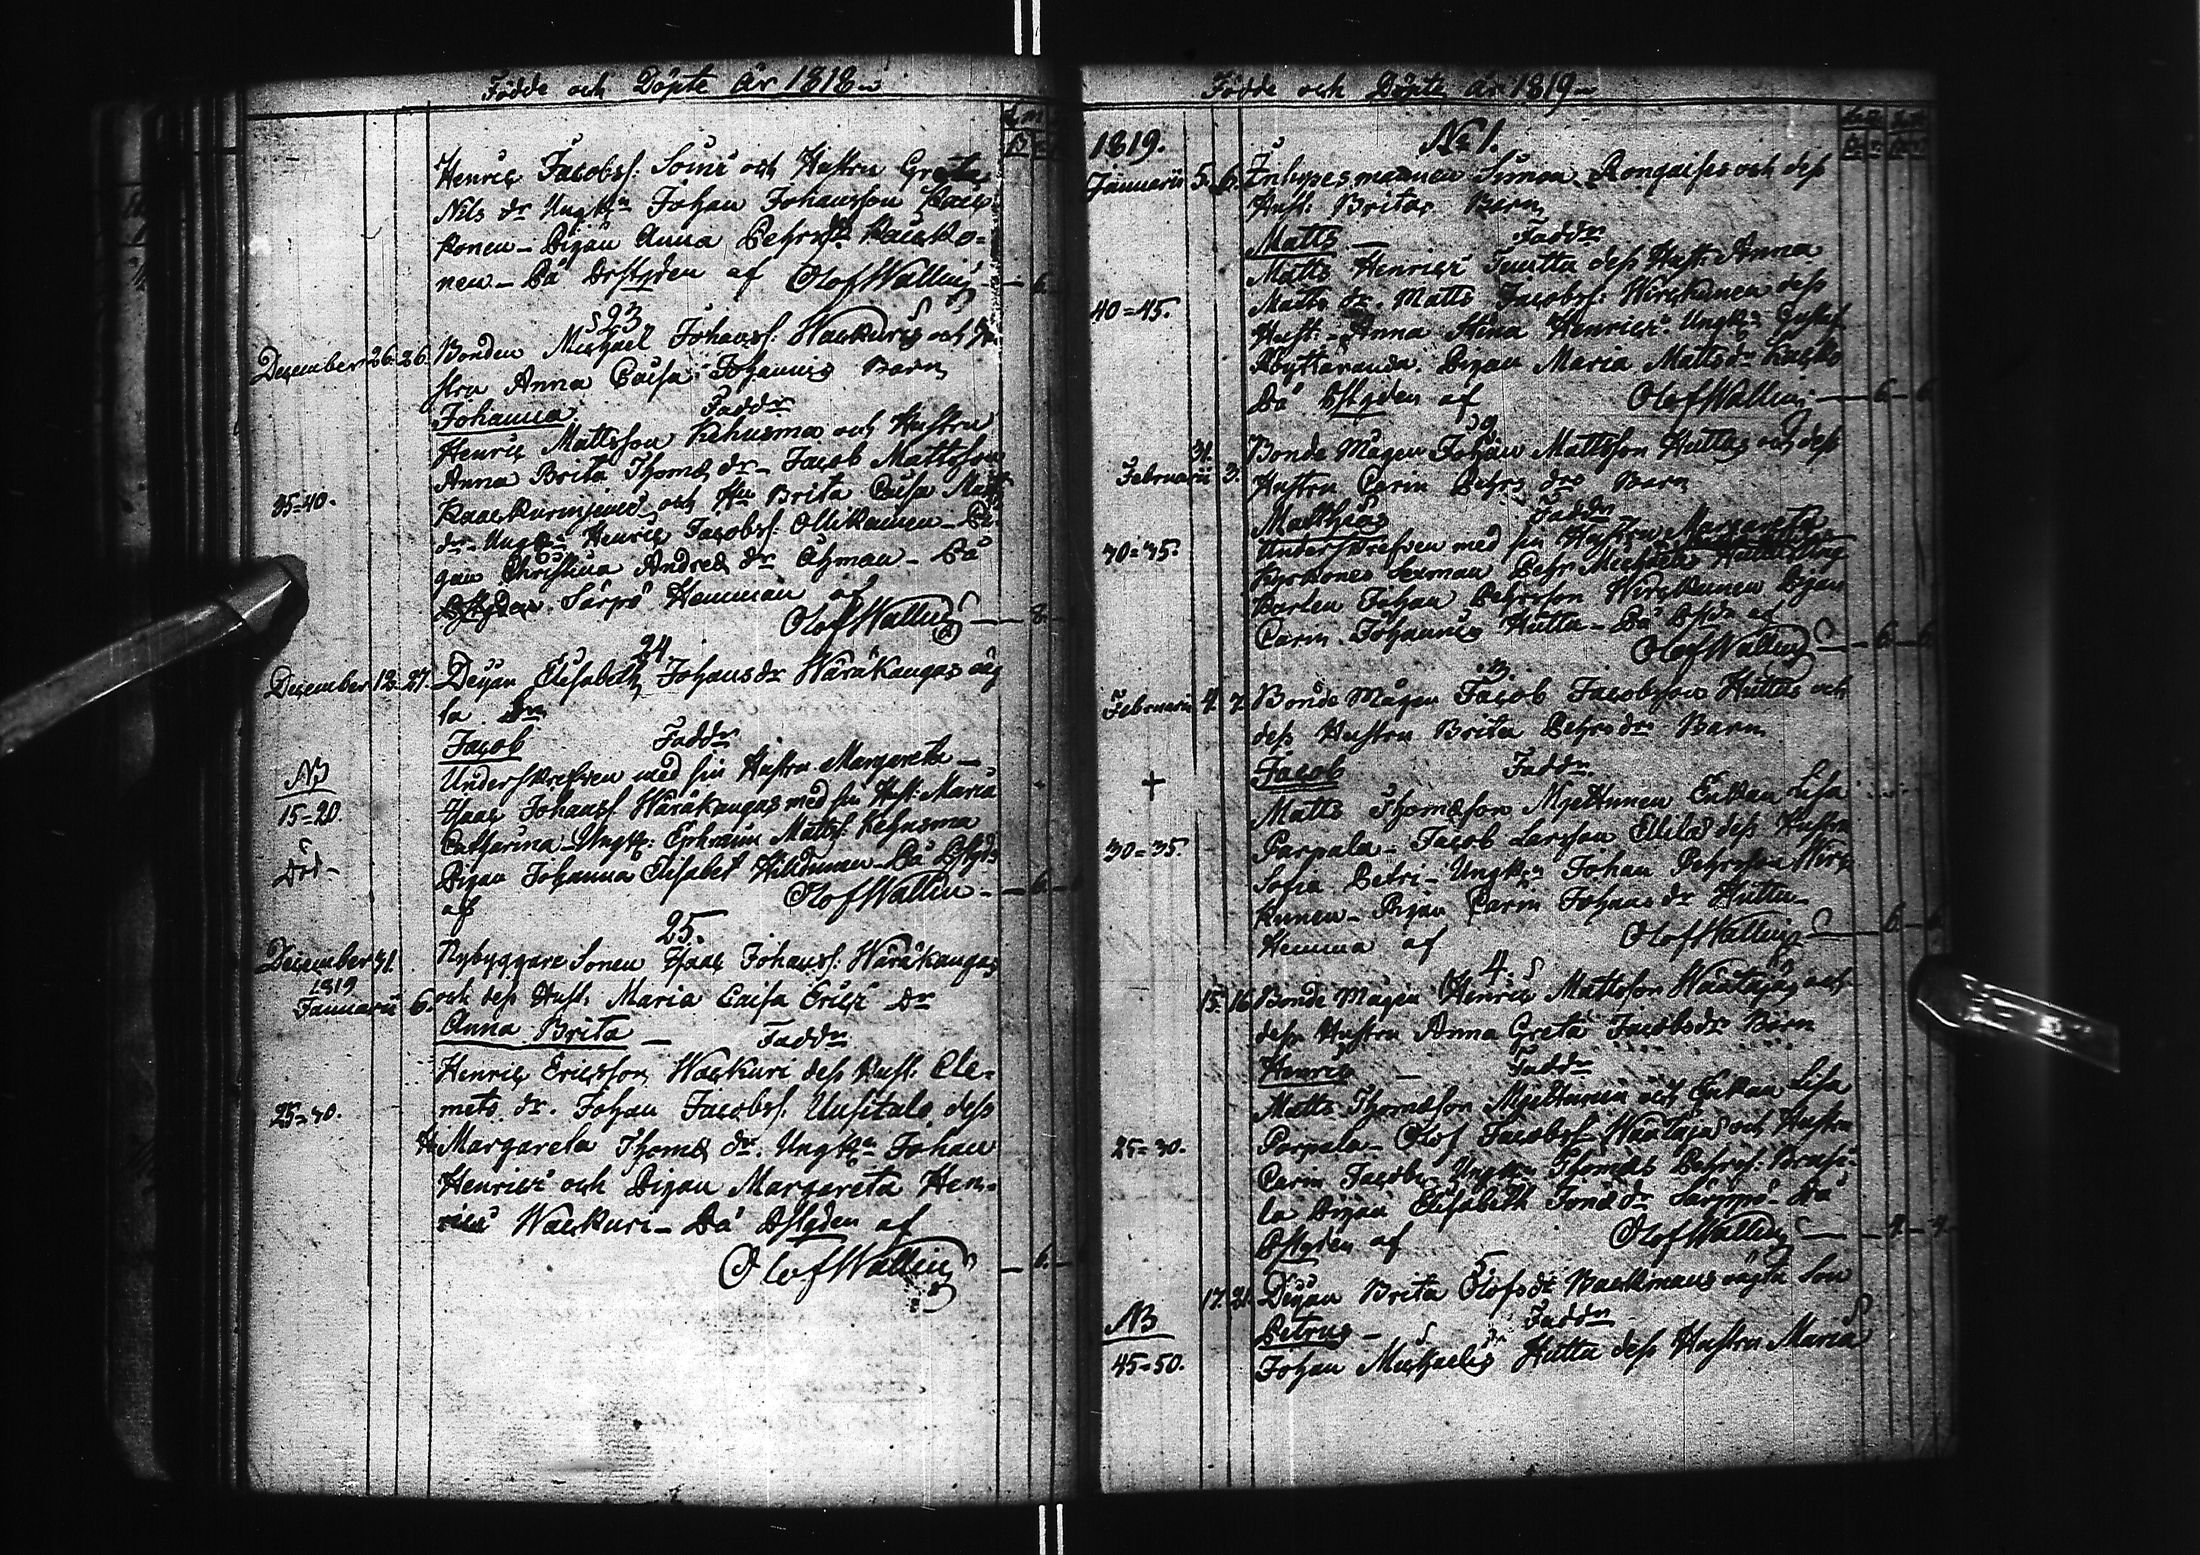 Födde och Döpte år 1818
Henric Jacobss: Soini och Hustru Greta
Nils dr Ungkn Johan Johansson
konen – Pigan Anna Pehrsdr
nen – På Prstgden af Olof Wallin – 6
23
December 26. 26. Bonden Michael Johanss: Wackuris och Hu
stru Anna Caisa Johannis Barn
Johanna Faddr
Henric Mattsson Kehusma och Hustru
Anna Brita Thomæ dr – Jacob Mattsson
35=40. och Hu Brita Caisa Matts
dr – Ungkn Henric Jacobss: Ollikainen – Pi
gan Christina Andreæ dr Öhman – På
Särpö Hemman af
Olof Wallin – 8
24
December 12. 27. Deÿan Elisabeth Johansdr Wäräkangas oäg
ta Sn
Jacob Faddr
NB Underskrefven med sin Hustru Margareta –
15=20. Isaac Johanss Wäräkangas med sin Hust: Maria
Catharina – Ungk: Ephraim Matts: Kehusma
Död – Pigan Johanna Elisabet – På
af Olof Wallin – 6
25.
December 31. Nybyggare Sonen Isaac Johanss: Wäräkangas
1819
Januarii 6. och dess Hust: Maria Caisa Erics dr
Anna Brita – Faddr
Henric Ericsson Wackuri dess Hust: Cle-
25=30. mets dr. Johan Jacobss: Uusitalo dess
H Margareta Thomæ dr. Ungkn Johan
Henrics och Pigan Margareta Hen-
rics Wackuri – På Prstgden af
Olof Wallin – 6.
Födde och Döpte år 1819
1819. No 1.
Januarii 5. 6. Inhysesmannen Simon och dess
Hust: Britas Barn
Matts – Faddr
Matts Henrics dess Hust: Anna
40=45. Matts dr. Matts Jacobss: Wirckunen dess
Hust: Anna Stina Henrics. Ungkn
Pigan Maria Mattsdr
På af Olof Wallin – 6 – 6
2
31. Bonde Mågen Johan Mattsson Huttas och dess
Februarii 3. Hustru Carin Pehrs drs Barn
Matthias Faddr
30=35. Underskrefven med sin Hustru Margareta
Kyrkones Sexman Pehr Michaels
Johan Pehrsson Wirckunen Pigan
Carin Johannis Hutta – På af
Olof Wallin – 6 – 6
3.
Februarii 4. 7. Bonde Mågen Jacob Jacobsson Huttas och
dess Hustru Brita Pehrsdrs Barn
Jacob Faddr
+ Matts Thomæson Mjettunen Enkan Lisa
30=35. Parpala – Jacob Larsson dess Hustru
Sofia Petri – Ungkn Johan Pehrsson Wirc
kunen – Pigan Carin Johans dr Hutta –
Hemma af Olof Wallin – 6 – 6
4.
15. 16. Bonde Mågen Henric Mattsson Häntajäs och
dess Hustru Anna Greta Jacobsdrs Barn
Henric – Faddr
Matts Thomæson Mjettunen och Enkan Lisa
25=30. Parpala – Olof Jacobss och Hustru
Carin Jacobs – Ungkn Thomas Pehrss:
la Pigan Elisabeth Jonæ dr Särppö – På
af Olof Wallin – 4 – 4
5.
17. 21. Deÿan Brita Olofsdr Backmans oägta Son
NB Petrus – Faddr
45=50. Johan Michaelis Hutta dess Hustru Maria